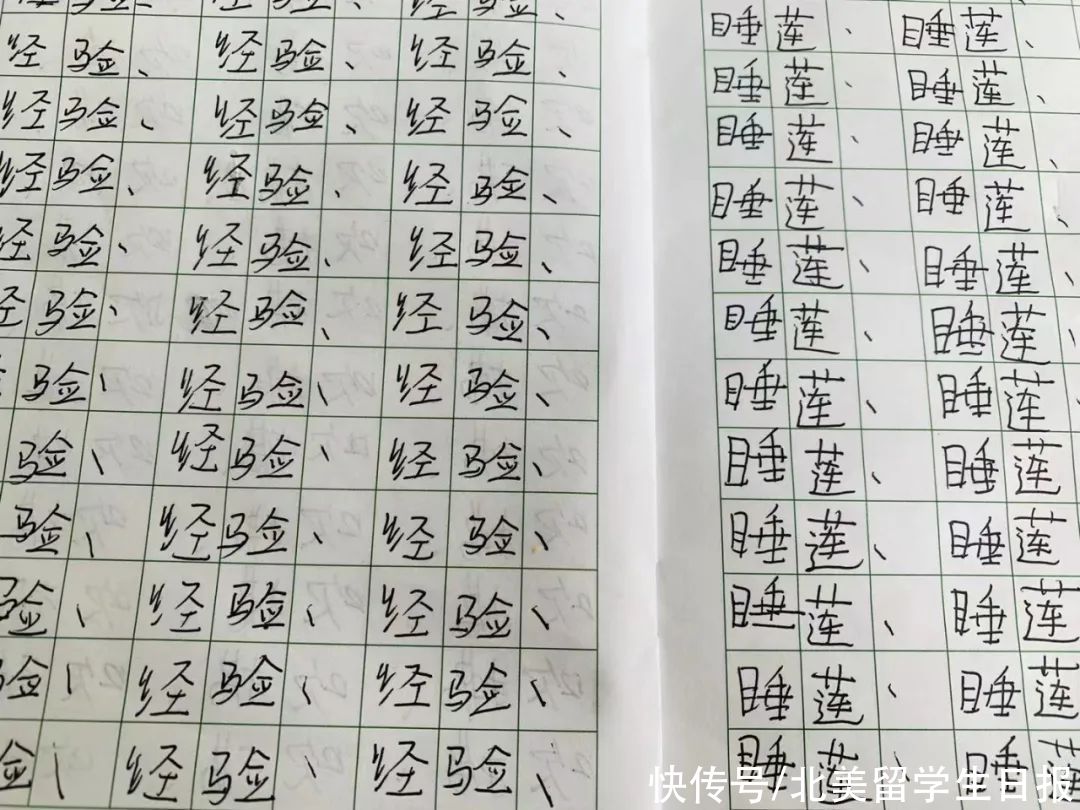 经验、经验、经验、
经验、经验、经验、
经验、经验、经验、
经验、经验、经验、
经验、经验、经验、
验、经验、经验、
验、经验、经验、
验、经验、经验、
验、经验、经验、
验、经验、经验、
验、经验、经验、
睡莲、睡莲、
睡莲、睡莲、
睡莲、睡莲、
睡莲、睡莲、
睡莲、睡莲、
睡莲、睡莲、
睡莲、睡莲、
睡莲、睡莲
睡莲、睡莲
睡莲、睡莲
睡莲、睡莲
睡莲、睡莲
快传号/北美留学生日报